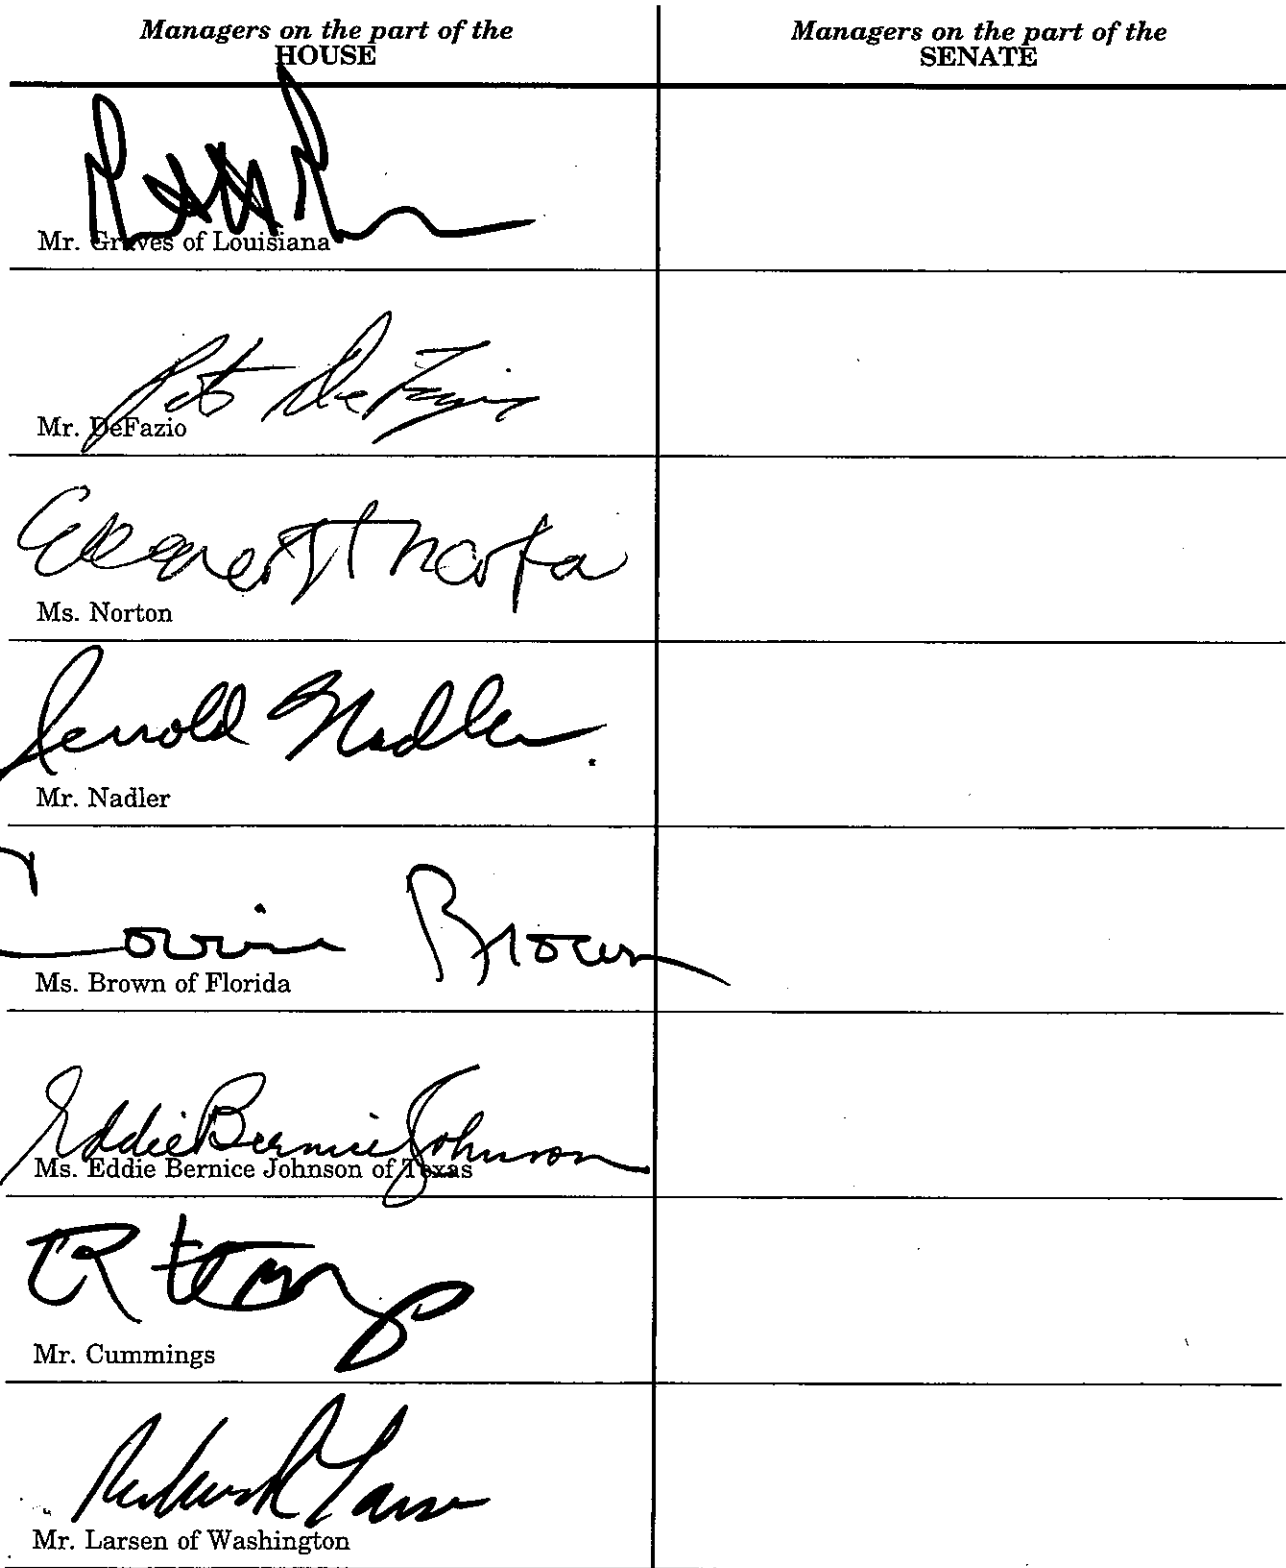 Managers on the part of the
HOUSE
Managers on the part of the
SENATE
Mr. Graves of Louisiana
Pete DeFazio
Mr. DeFazio
Eleanor H Norton
Ms. Norton
Jerrold Nadler
Mr. Nadler
Corrine Brown
Ms. Brown of Florida
Eddie Bernice Johnson
Ms. Eddie Bernice Johnson of Texas
Mr. Cummings
Mr. Larsen of Washington